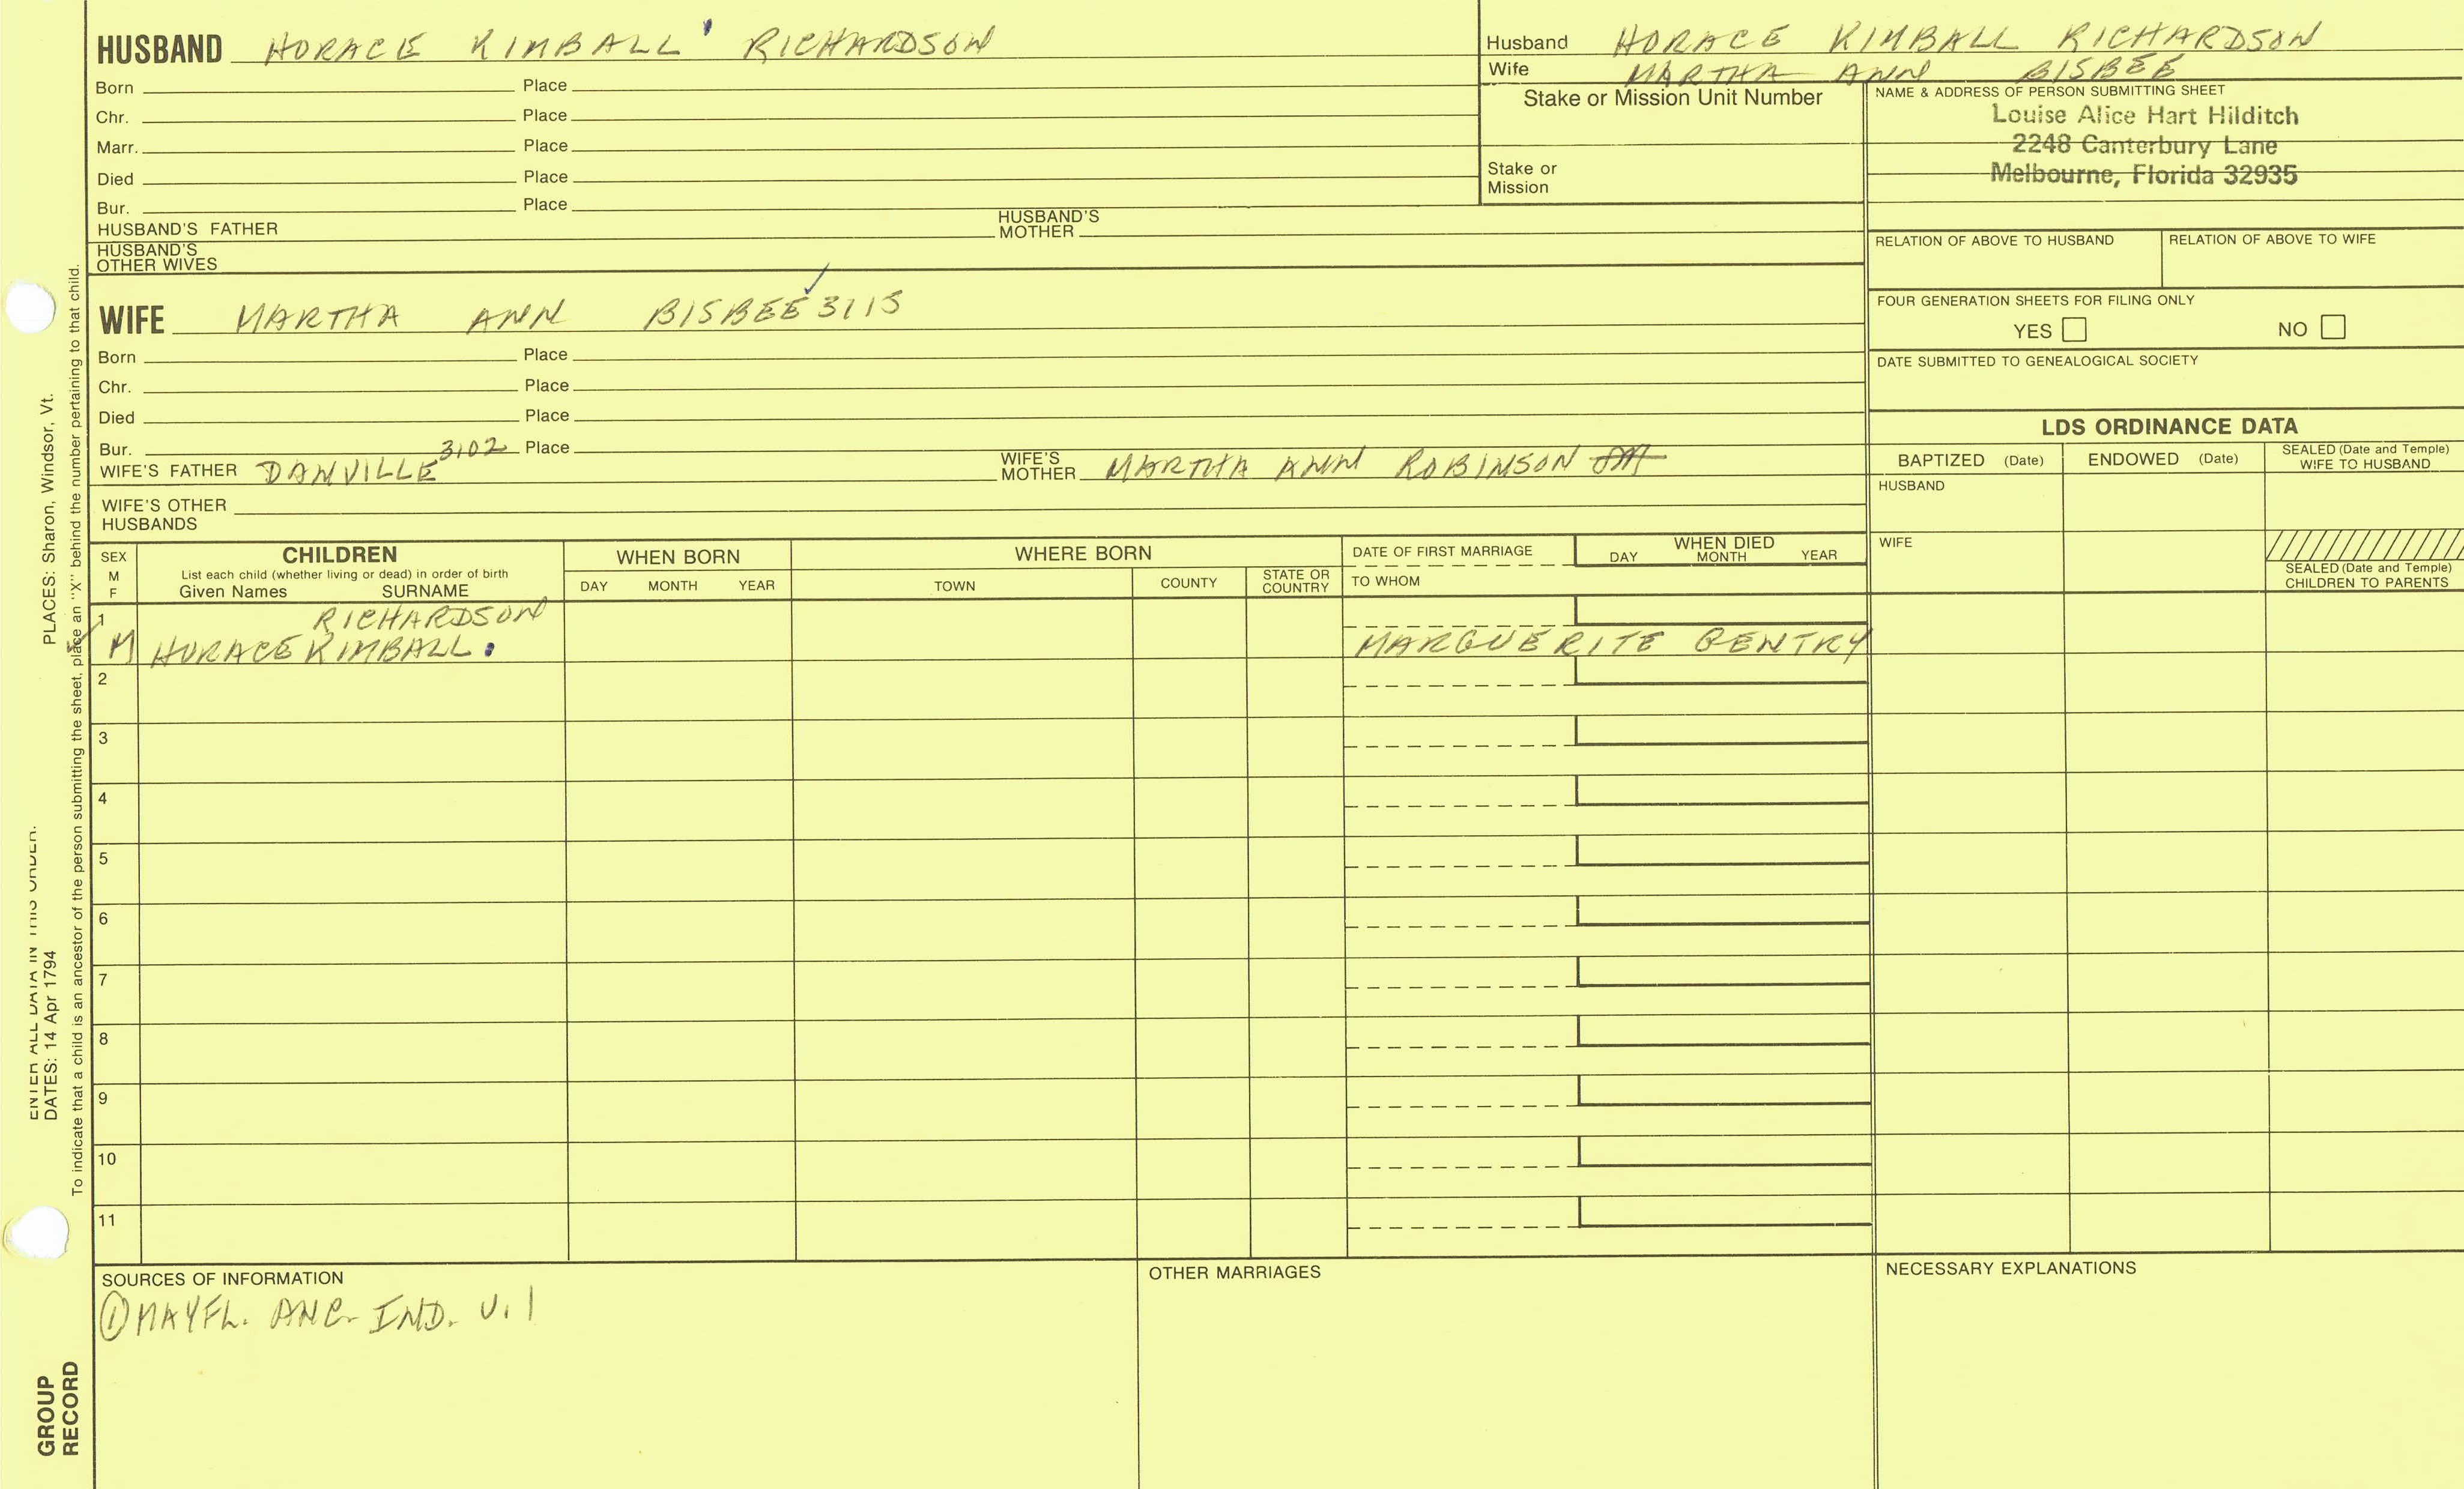 HUSBAND HORACE KIMBALL RICHARDSON
Born Place
Chr. Place
Marr. Place
Died Place
Bur. Place
HUSBAND'S FATHER HUSBAND'S MOTHER
HUSBAND'S OTHER WIVES
Husband HORACE KIMBALL RICHARDSON
Wife MARTHA ANN BISBEE
Stake or Mission Unit Number
Stake or Mission
NAME & ADDRESS OF PERSON SUBMITTING SHEET
Louise Alice Hart Hilditch
2248 Canterbury Lane
Melbourne, Florida 32935
RELATION OF ABOVE TO HUSBAND RELATION OF ABOVE TO WIFE
FOUR GENERATION SHEETS FOR FILING ONLY
YES NO
DATE SUBMITTED TO GENEALOGICAL SOCIETY
WIFE MARTHA ANN BISBEE 3115
Born Place
Chr. Place
Died Place
Bur. Place
WIFE'S FATHER DANVILLE 3102 WIFE'S MOTHER MARTHA ANN ROBINSON
WIFE'S OTHER HUSBANDS
LDS ORDINANCE DATA
BAPTIZED (Date) ENDOWED (Date) SEALED (Date and Temple) WIFE TO HUSBAND
HUSBAND
WIFE
SEALED (Date and Temple) CHILDREN TO PARENTS
SEX M F
CHILDREN
List each child (whether living or dead) in order of birth
Given Names SURNAME
WHEN BORN
DAY MONTH YEAR
WHERE BORN
TOWN COUNTY STATE OR COUNTRY
DATE OF FIRST MARRIAGE
TO WHOM
WHEN DIED
DAY MONTH YEAR
1 RICHARDSON
M HORACE KIMBALL MARGUERITE GENTRY
2
3
4
5
6
7
8
9
10
11
SOURCES OF INFORMATION
① MAYFL. ANC. IND. V. 1
OTHER MARRIAGES
NECESSARY EXPLANATIONS
ENTER ALL DATA IN THIS ORDER.
DATES: 14 Apr 1794 PLACES: Sharon, Windsor, Vt.
To indicate that a child is an ancestor of the person submitting the sheet, place an "X" behind the number pertaining to that child.
GROUP
RECORD